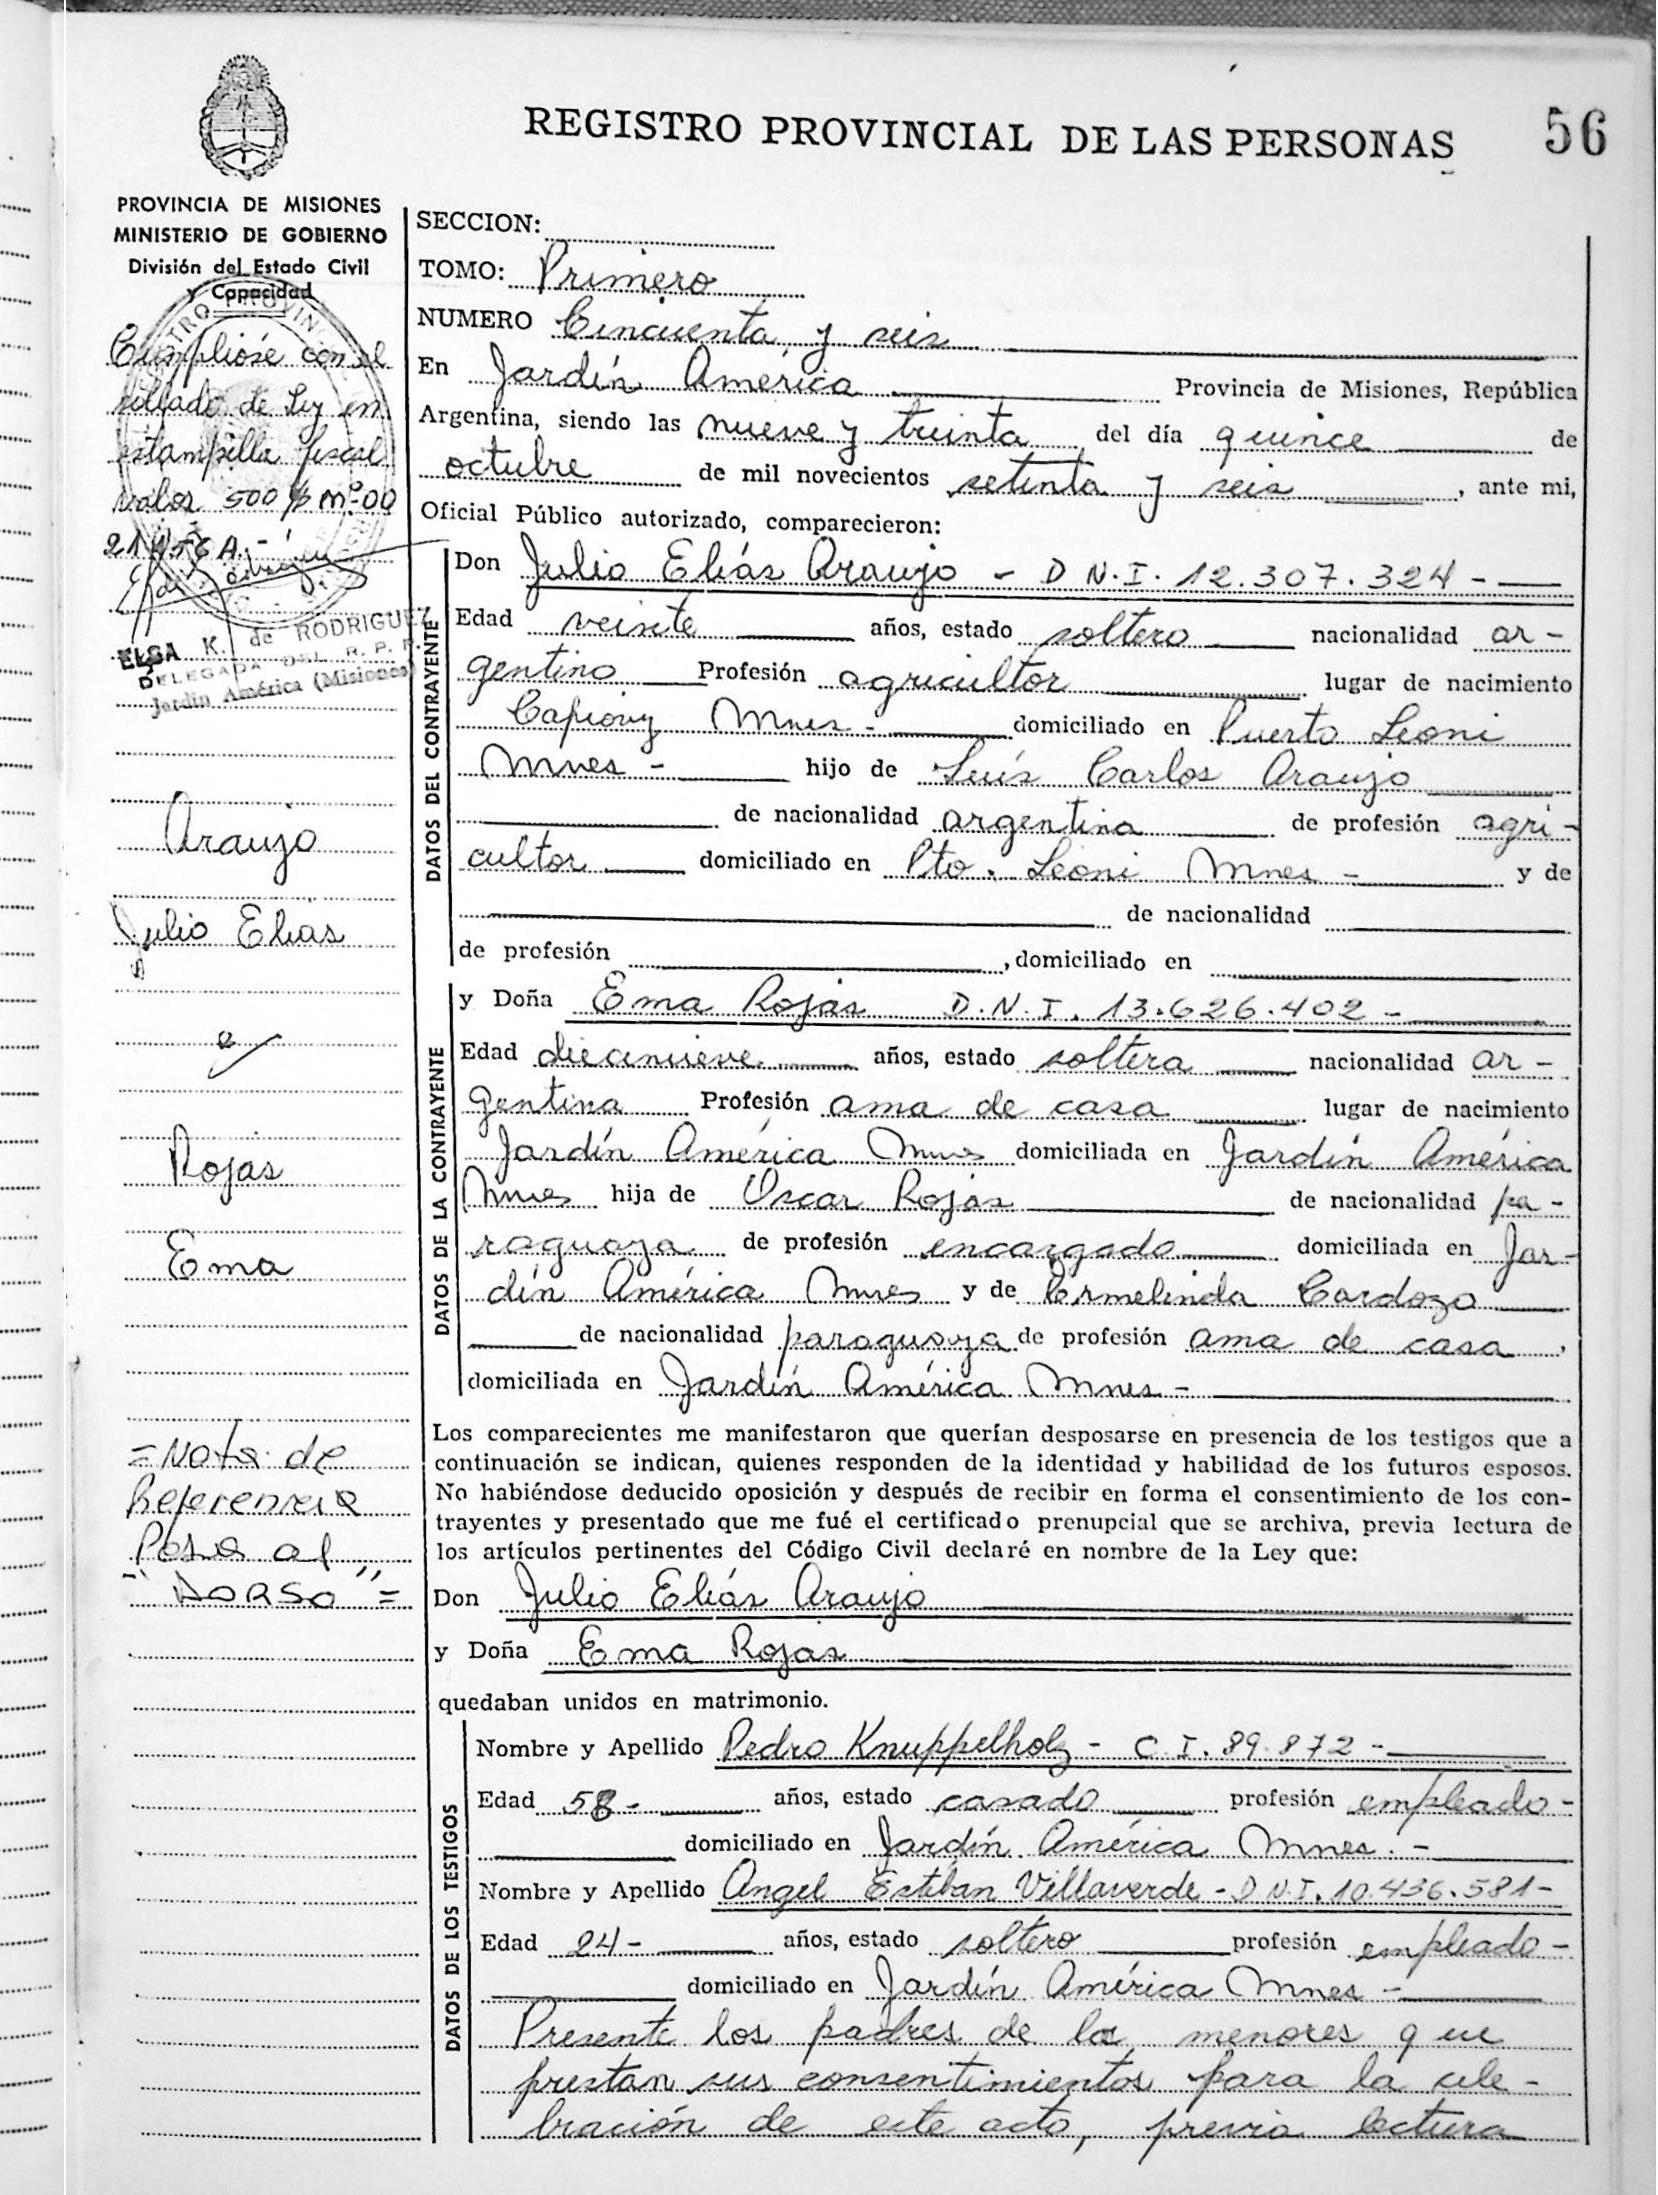 REGISTRO PROVINCIAL DE LAS PERSONAS
56
PROVINCIA DE MISIONES
MINISTERIO DE GOBIERNO
División del Estado Civil
y Capacidad
Cumpliose con el
sellado de Ley en
estampilla fiscal
valor 500 $ nº 00
ELSA K. de RODRIGUEZ
DELEGADA DEL R. P. P.
Jardín América (Misiones)
Araujo
Julio Elias
e
Rojas
Ema
= Nota de
Referencia
Pasa al
"DORSO" =
SECCION:
TOMO: Primero
NUMERO Cincuenta y seis
En Jardín América Provincia de Misiones, República
Argentina, siendo las nueve y treinta del día quince de
octubre de mil novecientos setenta y seis, ante mi,
Oficial Público autorizado, comparecieron:
DATOS DEL CONTRAYENTE
Don Julio Elías Araujo - D N.I. 12.307.324 -
Edad veinte años, estado soltero nacionalidad ar-
gentino Profesión agricultor lugar de nacimiento
Capiovy Mnes - domiciliado en Puerto Leoni
Mnes - hijo de Luís Carlos Araujo
de nacionalidad argentina de profesión agri-
cultor domiciliado en Pto. Leoni Mnes - y de
de nacionalidad
de profesión , domiciliado en
DATOS DE LA CONTRAYENTE
y Doña Ema Rojas D.N.I. 13.626.402 -
Edad diecinueve años, estado soltera nacionalidad ar-
gentina Profesión ama de casa lugar de nacimiento
Jardín América Mnes domiciliada en Jardín América
Mnes hija de Oscar Rojas de nacionalidad pa-
raguaya de profesión encargado domiciliada en Jar-
dín América Mnes y de Ermelinda Cardozo
de nacionalidad paraguaya de profesión ama de casa,
domiciliada en Jardín América Mnes -
Los comparecientes me manifestaron que querían desposarse en presencia de los testigos que a
continuación se indican, quienes responden de la identidad y habilidad de los futuros esposos.
No habiéndose deducido oposición y después de recibir en forma el consentimiento de los con-
trayentes y presentado que me fué el certificado prenupcial que se archiva, previa lectura de
los artículos pertinentes del Código Civil declaré en nombre de la Ley que:
Don Julio Elías Araujo
y Doña Ema Rojas
quedaban unidos en matrimonio.
DATOS DE LOS TESTIGOS
Nombre y Apellido Pedro Knuppelholz - C.I. 89.872 -
Edad 58 - años, estado casado profesión empleado -
domiciliado en Jardín América Mnes. -
Nombre y Apellido Angel Esteban Villaverde - D.N.I. 10.436.581 -
Edad 24 - años, estado soltero profesión empleado -
domiciliado en Jardín América Mnes -
Presente los padres de los menores que
prestan sus consentimientos para la cele-
bración de este acto, previa lectura